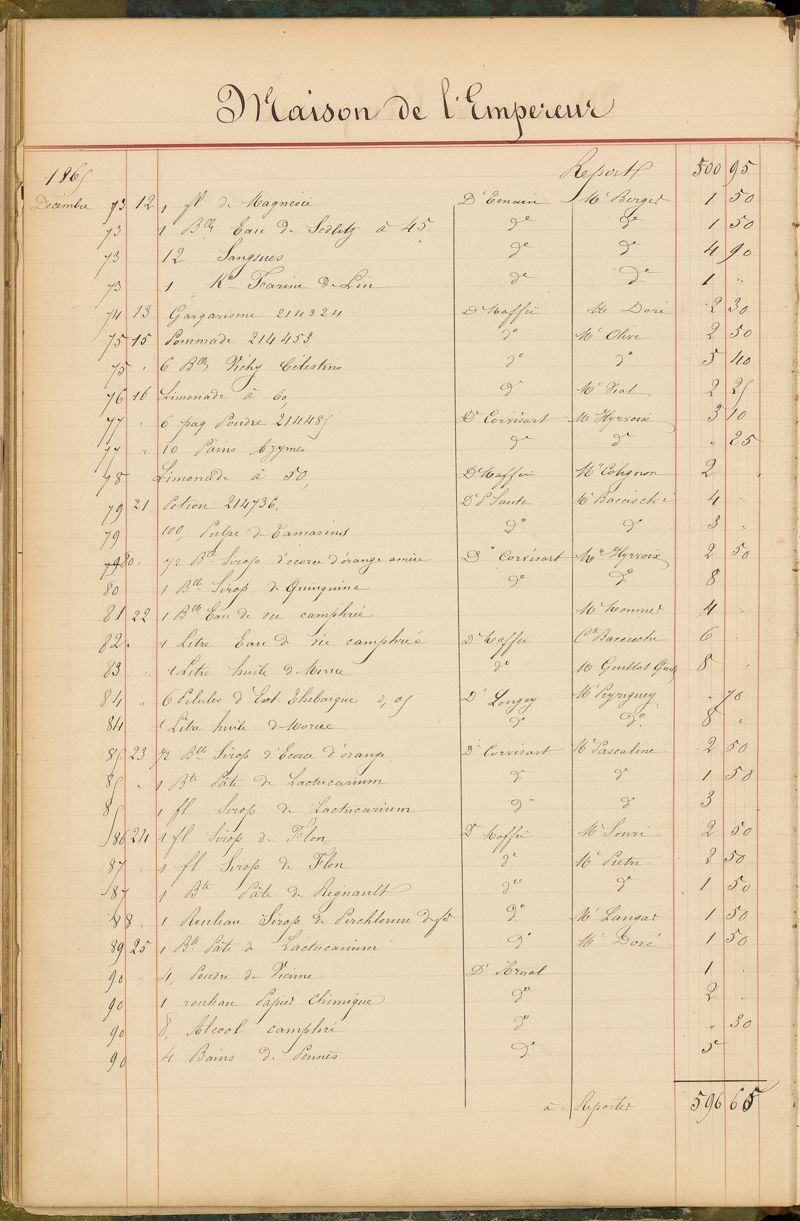 Maison de l'Empereur
1865 Report 500 95
Décembre 73 12 1 fl de Magnésie Dr Tenain Mr Berger 1 50
73 1 Blle Eau de Sedlitz à 45 do do 1 50
73 12 Sangsues do do 4 90
73 1 Ko Farine de Lin do do 1 "
74 13 Gargarisme 214324 Dr Maffei Mr Doré 2 30
75 15 Pommade 214453 do Mr Olive 2 50
75 " 6 Blles Vichy Célestins do do 5 40
76 16 Limonade à 60, do Mr Vial 2 25
77 " 6 paq Poudre 214485 Dr Corvisart Mr Hyrvoix 3 10
77 " 10 Pains Azymes do do " 25
78 Limonade à 50, Dr Maffei Mr Colignon 2 "
79 21 Potion 214736. Dr P. Santa Mr Bacciochi 4 "
79 100, Pulpe de Tamarins do do 3 "
80 " 1/2 Blle Sirop d'écorce d'orange amère Dr Corvisart Mr Hyrvoix 2 50
80 1 Blle Sirop de Quinquina do do 8
81 22 1 Blle Eau de vie camphrée Mr Monnier 4 "
82 " 1 Litre Eau de vie camphrée Dr Maffei Cte Bacciochi 6 "
83 " 1 Litre huile d Morue do Mr Guillot 8 "
84 " 6 Pilules d'Ext Thébaïque 0,05 Dr Longey Mr Peyrigney " 70
84 1 Litre huile d Morue do do 8 "
85 23 1/2 Blle Sirop d'Ecorce d'orange Dr Corvisart Mr Pascaline 2 50
85 " 1 Bte Pâte de Lactucarium do do 1 50
85 1 fl Sirop de Lactucarium do do 3
86 24 1 fl Sirop de Flon Dr Maffei Mr Souri 2 50
87 " 1 fl Sirop de Flon do Mr Pietri 2 50
87 1 Bte Pâte de Regnault do do 1 50
88 " 1 Rouleau Sirop de Perchlorure de fer do Mr Langar 1 50
89 25 1 Bte Pâte de Lactucarium do Mr Doré 1 50
90 " 4, Poudre de Vienne Dr Arnal 1 "
90 1 rouleau Papier Chimique do 2 "
90 8, Alcool camphré do " 30
90 4 Bains de Pennès do 5
à Reporter 596 65